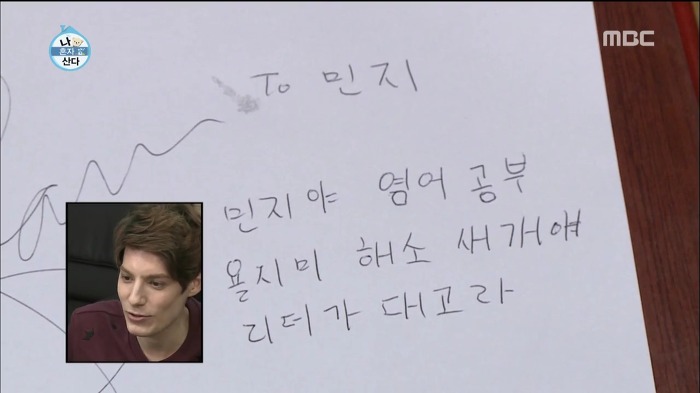 나
혼자
산다
MBC
To 민지
민지야 염어 공부
욜지미 해소 새개야
리더가 대고라